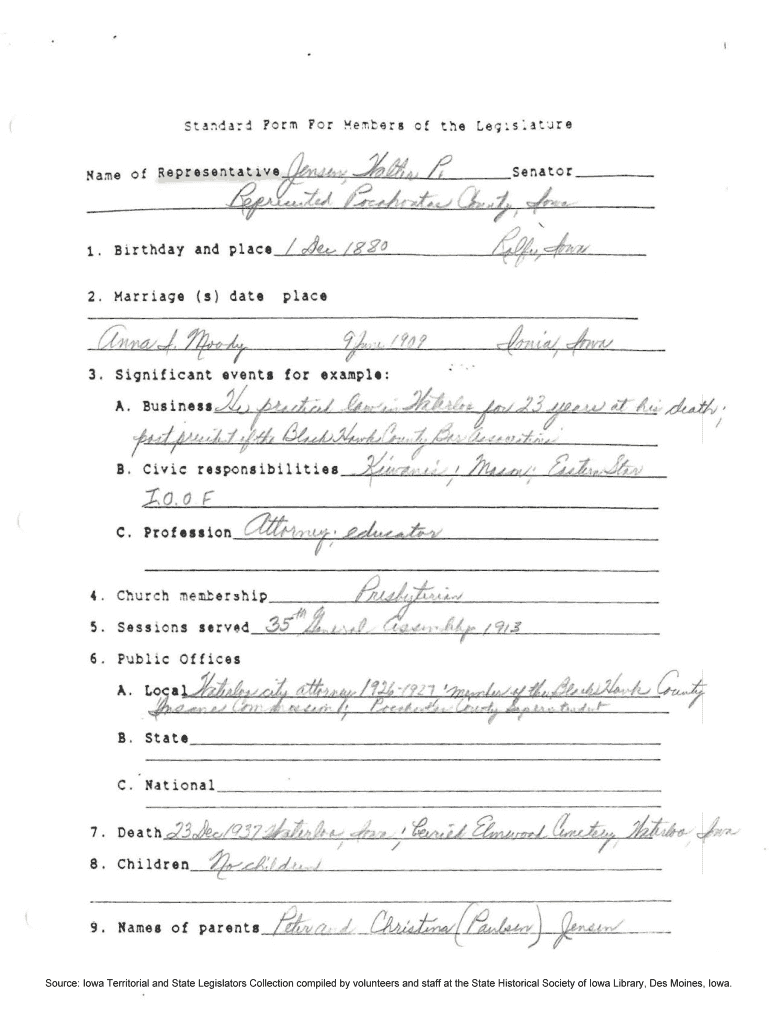 Standard Form For Members of the Legislature
Name of Representative Jensen, Walter P. Senator
Represented Pocahontas County, Iowa
1. Birthday and place 1 Dec 1880 Rolfe, Iowa
2. Marriage (s) date place
Anna I. Moody 9 June 1909 Ionia, Iowa
3. Significant events for example:
A. Business He practiced law in Waterloo for 23 years at his death;
past president of the Black Hawk County Bar Association
B. Civic responsibilities Kiwanis; Mason; Eastern Star
I.O.O F
C. Profession Attorney; educator
4. Church membership Presbyterian
5. Sessions served 35th General Assembly 1913
6. Public Offices
A. Local Waterloo city attorney 1926-1927; member of the Black Hawk County
Insane Commission; Pocahontas County Superintendent
B. State
C. National
7. Death 23 Dec 1937 Waterloo, Iowa; buried Elmwood Cemetery, Waterloo, Iowa
8. Children No children
9. Names of parents Peter and Christina (Paulsen) Jensen
Source: Iowa Territorial and State Legislators Collection compiled by volunteers and staff at the State Historical Society of Iowa Library, Des Moines, Iowa.